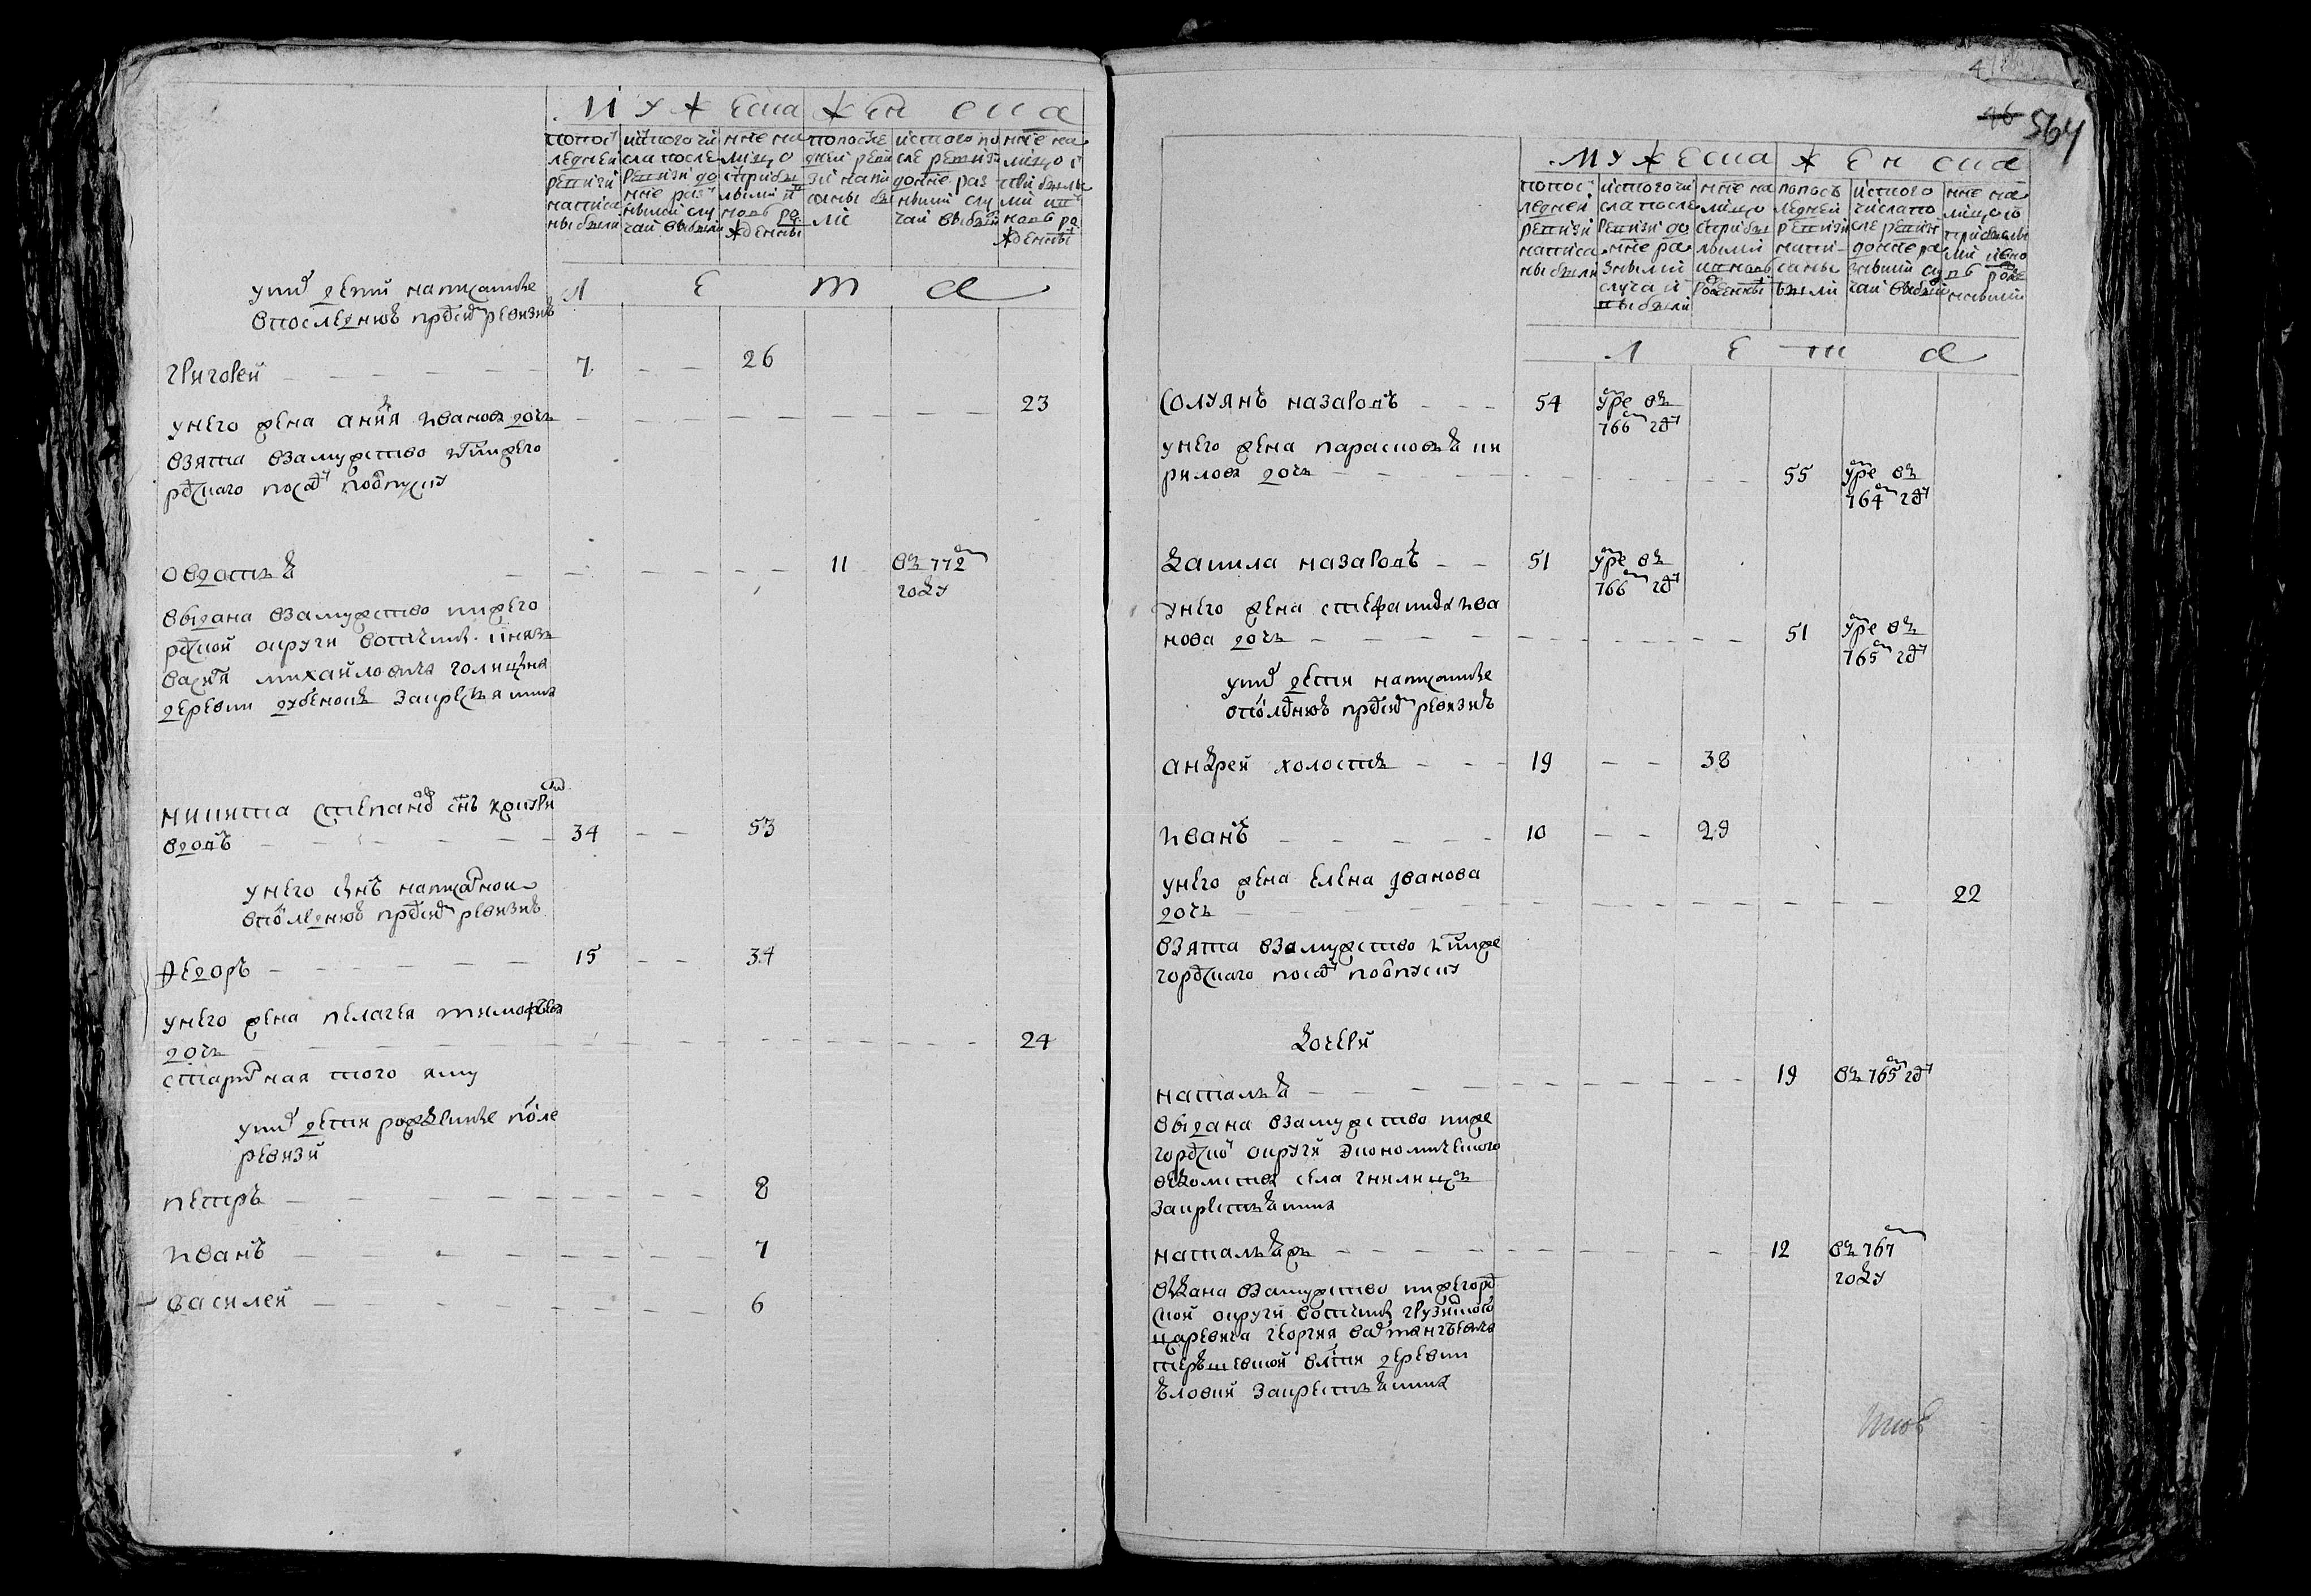 МУЖЕСКА ЖЕНСКА
попос
ледней
ревизи
написа
ны были
ис того чи
сла после
ревизи до
ные раз
ными слу
чаи выбыли
ные на
лицо
с прибы
лыми и
новь ро
жденны
по после
дней реви
зи напи
саны бы
ли
ис того по
сле ревизи
до ные раз
ными слу
чаи выбыли
ные на
лицо с
прибылы
ми и
новь ро
жденны
Л Е Т А
у них дети написанные
в последнюю пред сим ревизию
Григорей 7 26
у него жена Анна Иванова дочь 23
взята в замужство нижего
родского посаду по отпуску
Овдотья 11 в 772м
году
выдана в замужство нижего
родской округи вотчины князь
Василя Михайловича Голицына
деревни Дубенок за крестьянина
Никита Степанов снъ кон
34 53
у него сын написанной
в последнюю пред сим ревизию
Федоръ 15 34
у него жена Пелагея Тимофеева
дочь 24
старинная того яму
у них дети рожденные после
ревизи
Петръ 8
Иванъ 7
Василей 6
4
46 564
МУЖЕСКА ЖЕНСКА
попос
ледней
ревизи
написа
ны были
ис того чи
сла после
ревизи до
ные ра
зными
случаи
выбыли
ные на
лицо
с прибы
лыми
и новь
рожденны
по посъ
ледней
ревизи
напи
саны
были
ис того
числа по
сле ревизи
до ные ра
зными слу
чаи выбыли
ные на
лицо со
прибылы
ми и но
вь роже
нными
Л Е Т А
Солуянъ Назаровъ 54 умре въ
766м году
у него жена Парасковья Ки
рилова дочь 55 умре въ
764м году
Данила Назаровъ 51 умре въ
766м году
у него жена Стефанида Ива
нова дочь 51 умре въ
765м году
у них дети написанные
в последнюю пред сим ревизию
Андрей холостъ 19 38
Иванъ 10 29
у него жена Елена Иванова
дочь 22
взята в замужство из ниже
городского посаду по отпуску
дочери
Наталья 19 въ 765м году
выдана в замужство ниже
городской округи экономического
ведомства села Гнилищъ
за крестьянина
Наталья ж 12 въ 767м
году
выдана в замужство нижегород
ской округи вотчины грузинского
царевича Георгия Вахтангеевича
терюшевской волости деревни
за крестьянина